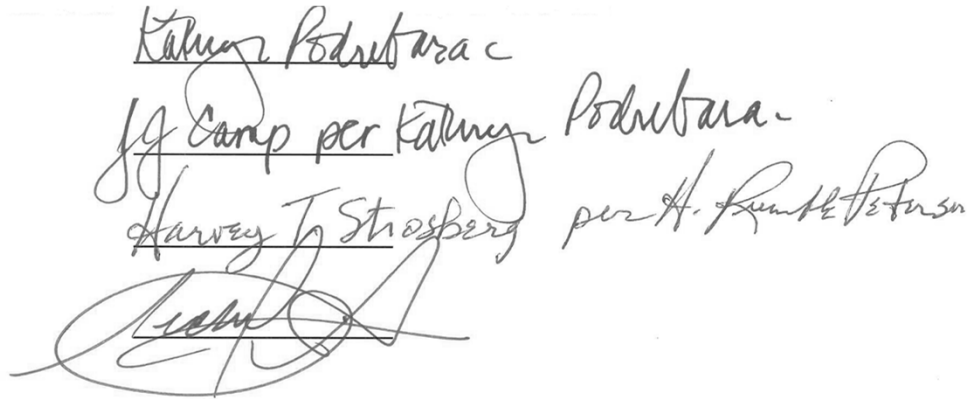 Kathryn Podrebarac
JJ Camp per Kathryn Podrebarac
Harvey T. Strosberg per H. Rumble Peterson